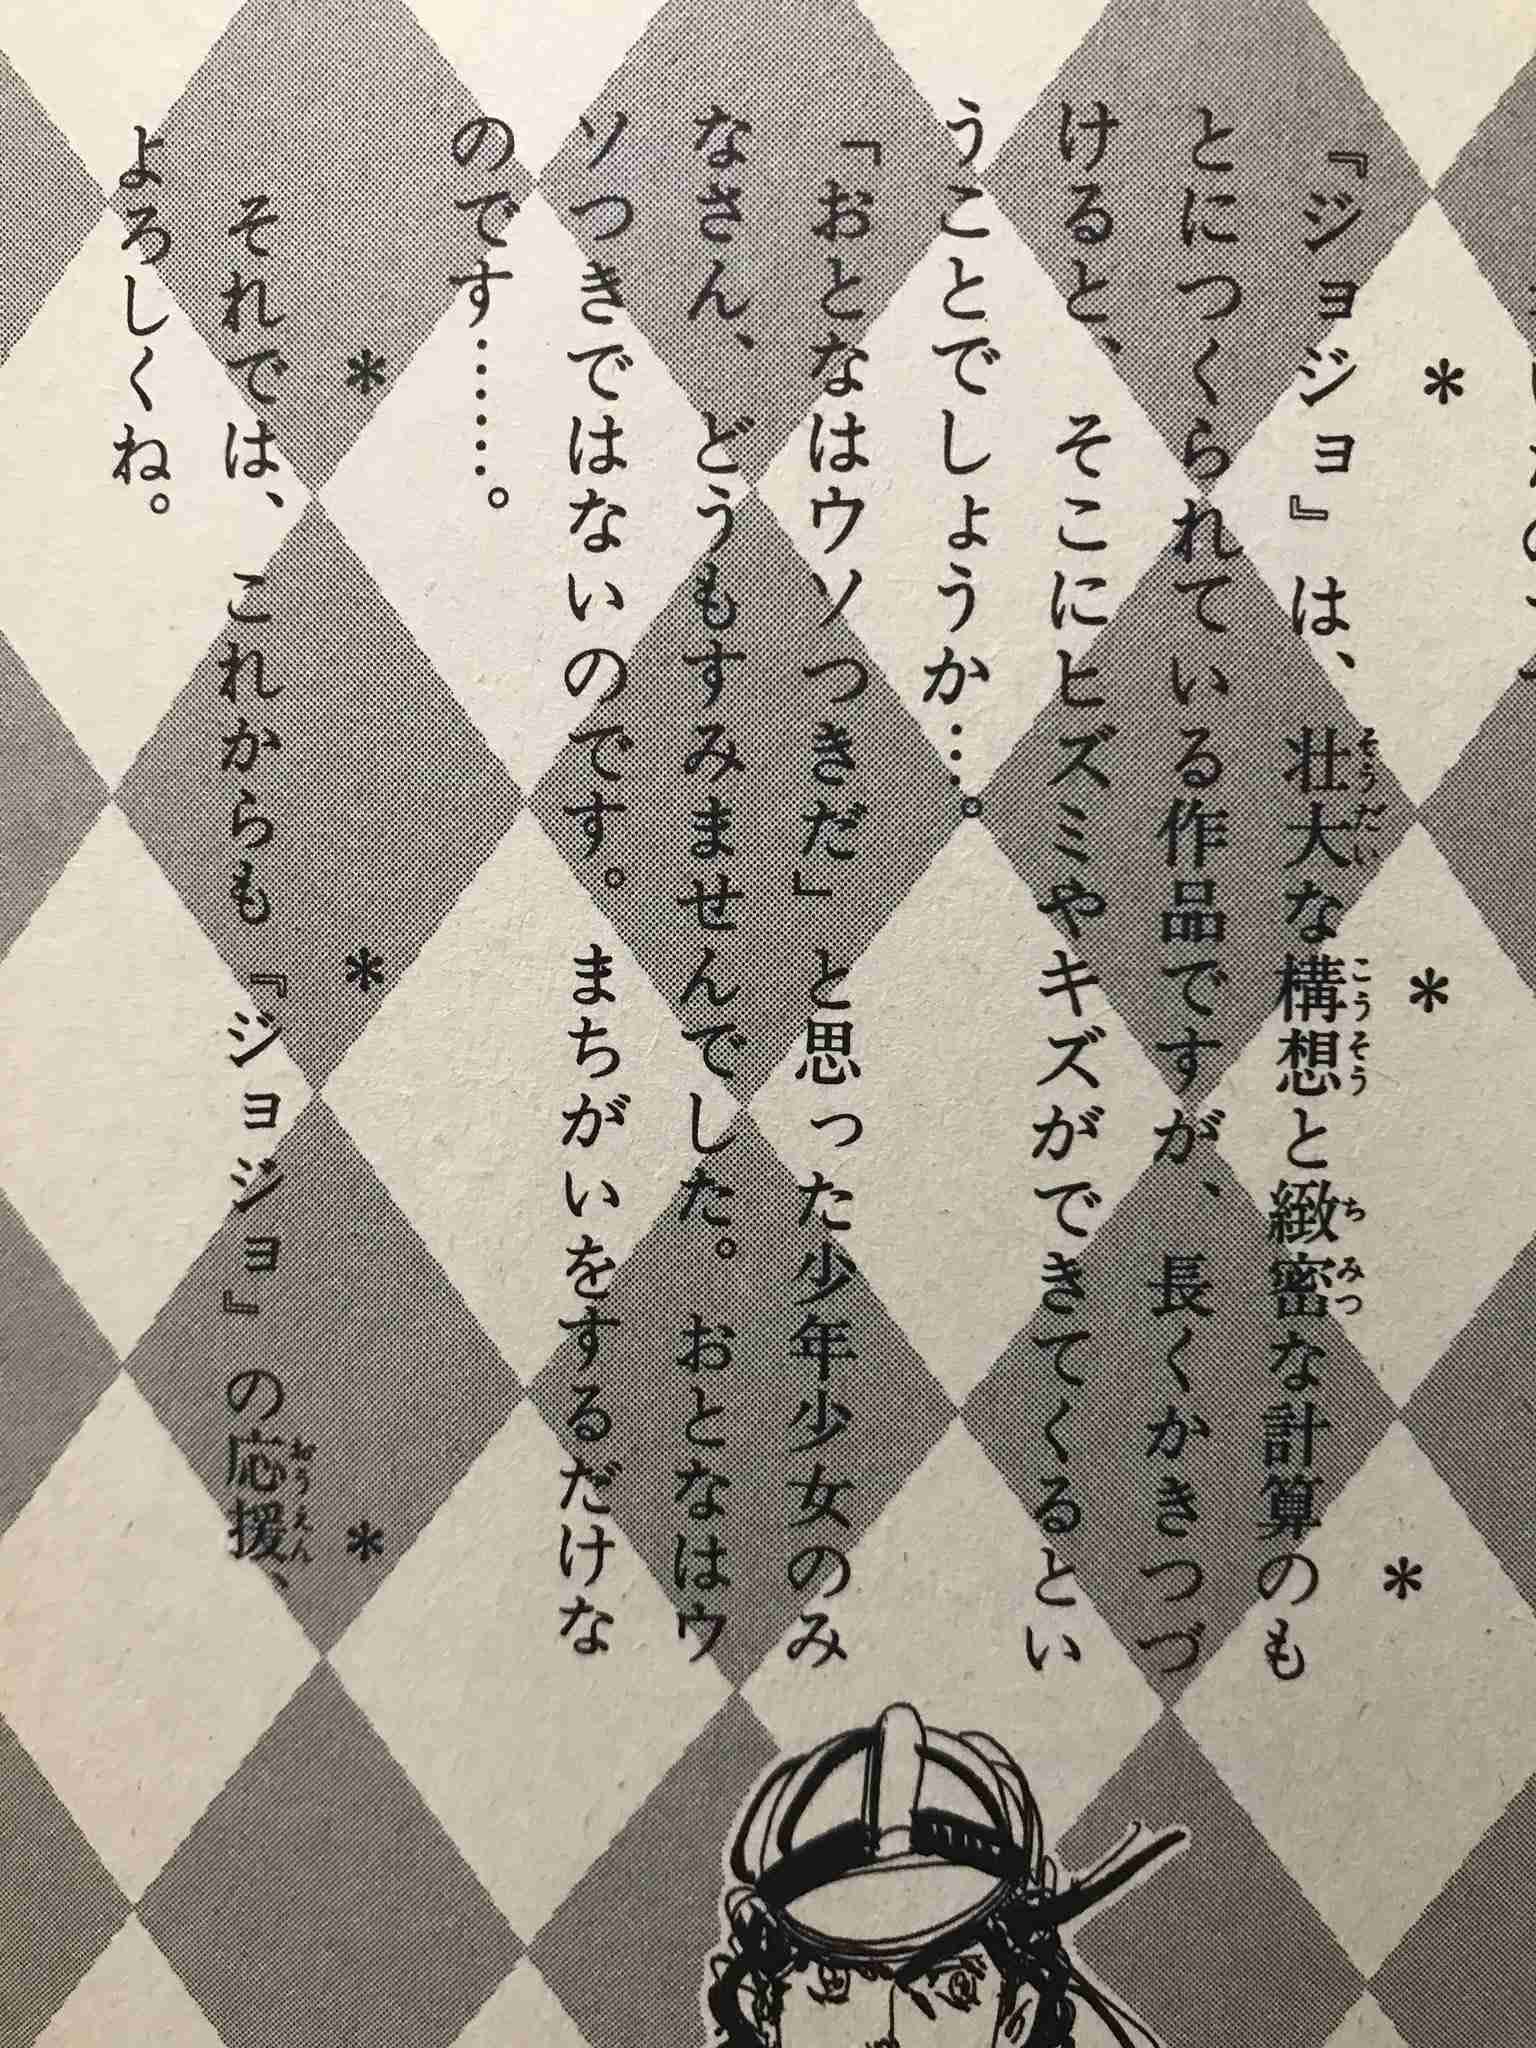 ＊　＊　＊
『ジョジョ』は、壮大な構想と緻密な計算のも
とにつくられている作品ですが、長くかきつづ
けると、そこにヒズミやキズができてくるとい
うことでしょうか…。
「おとなはウソつきだ」と思った少年少女のみ
なさん、どうもすみませんでした。おとなはウ
ソつきではないのです。まちがいをするだけな
のです……。
＊　＊　＊
それでは、これからも『ジョジョ』の応援、
よろしくね。